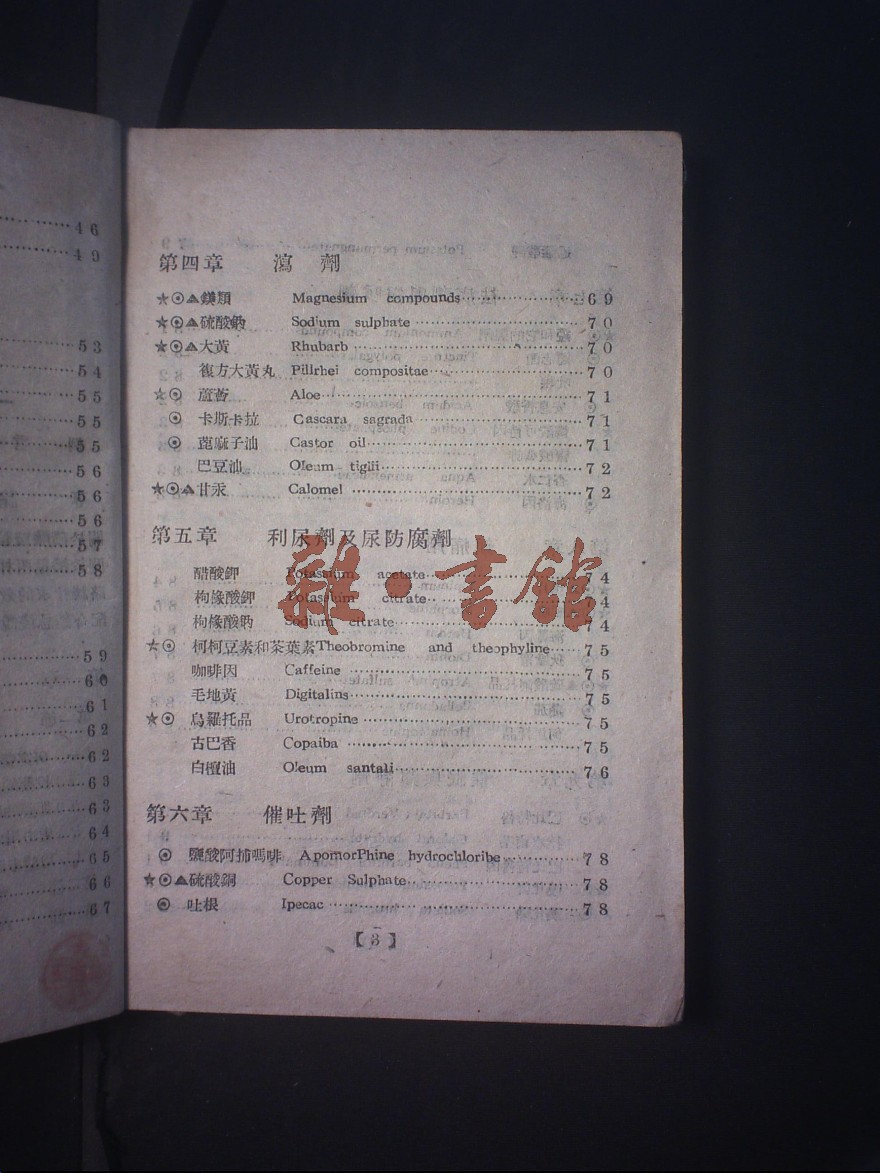 46
49
53
54
55
55
55
56
56
56
57
58
59
60
61
62
62
63
63
64
65
66
67
第四章 瀉劑
★⊙▲鎂類 Magnesium compounds 69
★⊙▲硫酸鈉 Sodium sulphate 70
★⊙▲大黃 Rhubarb 70
複方大黃丸 Pillrhei compositae 70
★⊙ 蘆薈 Aloe 71
⊙ 卡斯卡拉 Cascara sagrada 71
⊙ 蓖麻子油 Castor oil 71
巴豆油 Oleum tiglii 72
★⊙▲甘汞 Calomel 72
第五章 利尿劑及尿防腐劑
醋酸鉀 Potassium acetate 74
枸櫞酸鉀 Potassium citrate 74
枸櫞酸鈉 Sodium citrate 74
★⊙ 柯柯豆素和茶葉素 Theobromine and theophyline 75
咖啡因 Caffeine 75
毛地黃 Digitalins 75
★⊙ 烏羅托品 Urotropine 75
古巴香 Copaiba 75
白檀油 Oleum santali 76
第六章 催吐劑
⊙ 鹽酸阿捕嗎啡 ApomorPhine hydrochloribe 78
★⊙▲硫酸銅 Copper Sulphate 78
⊙ 吐根 Ipecac 78
【3】
雜·書館